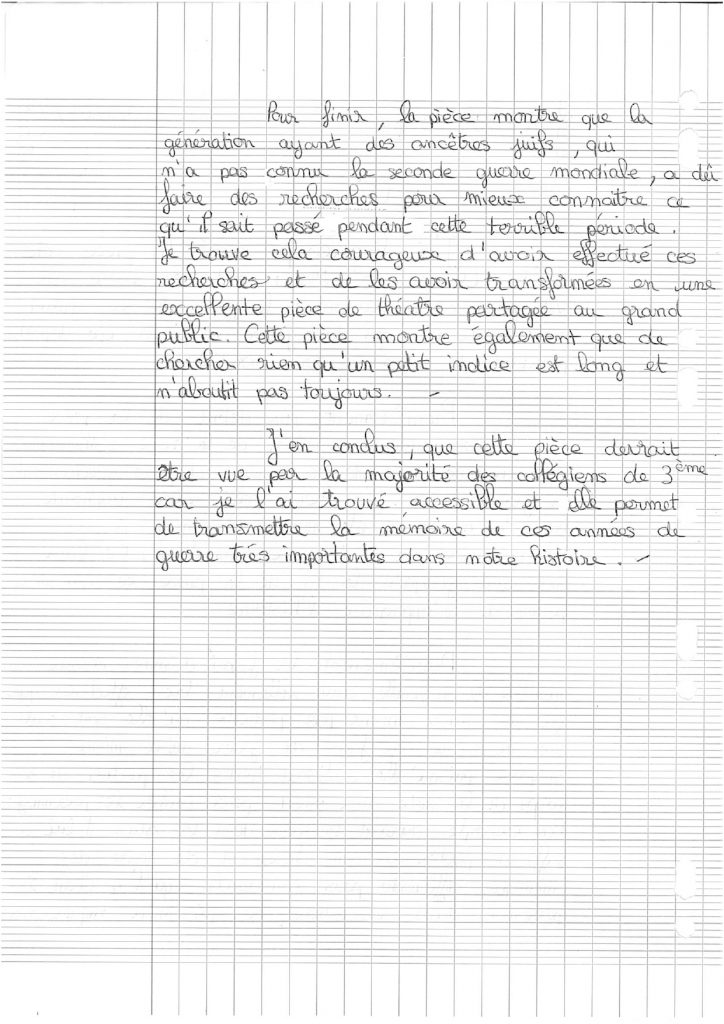 Pour finir, la pièce montre que la
génération ayant des ancêtres juifs, qui
n'a pas connu la seconde guerre mondiale, a dû
faire des recherches pour mieux connaître ce
qu'il sait passé pendant cette terrible période.
Je trouve cela courageux d'avoir effectué ces
recherches et de les avoir transformées en une
exccellente pièce de théatre partagée au grand
public. Cette pièce montre également que de
chercher rien qu'un petit indice est long et
n'aboutit pas toujours. –
J'en conclus, que cette pièce devrait
être vue par la majorité des collégiens de 3ème
car je l'ai trouvé accessible et elle permet
de transmettre la mémoire de ces années de
guerre trés importantes dans notre histoire. –